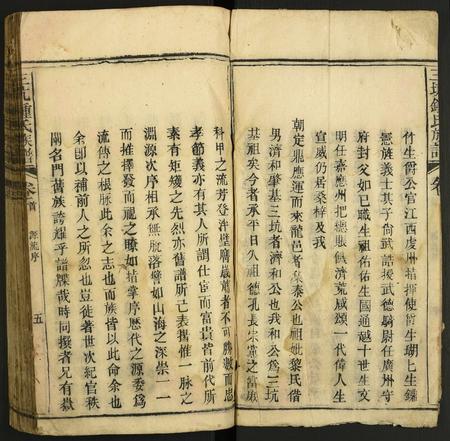 三坑鍾氏族譜
卷
竹生爵公官江西虔州指揮使衛生瑚上生鍾
憲族義士其子尙武誥授武德騎尉任廣州守
府封父如已職生祖佑佑生國通越十世生文
明任嘉應州把總賑飢濟荒咸頌一代偉人生
宣威仍居桑梓及我
朝定鼎應運而來龍邑者養泰公也祖妣黎氏偕
男濟和肇基三坑者濟和公也我和公為三坑
基祖矣今者承平日久祖德孔長宗黨之富族
科甲之流芳登泮璧膺歲薦者不可勝數而忠
孝節義亦有其人所謂仕宦而富貴皆前代所
素有矩矱之先烈亦舊譜所已表攜惟一脉之
淵源次序相承無脫落譬如山海之深崇一一
而推擇發而視之瞭如指掌序歷代之源委為
流傳之根脉此余之志也而族皆以此命余也
余卽以補前人之所忽也豈徒著世次紀官秩
闢名門舊族誇耀乎譜牒哉時同撥者兄有嶽
三坑鍾氏族譜
卷首
源流序
五